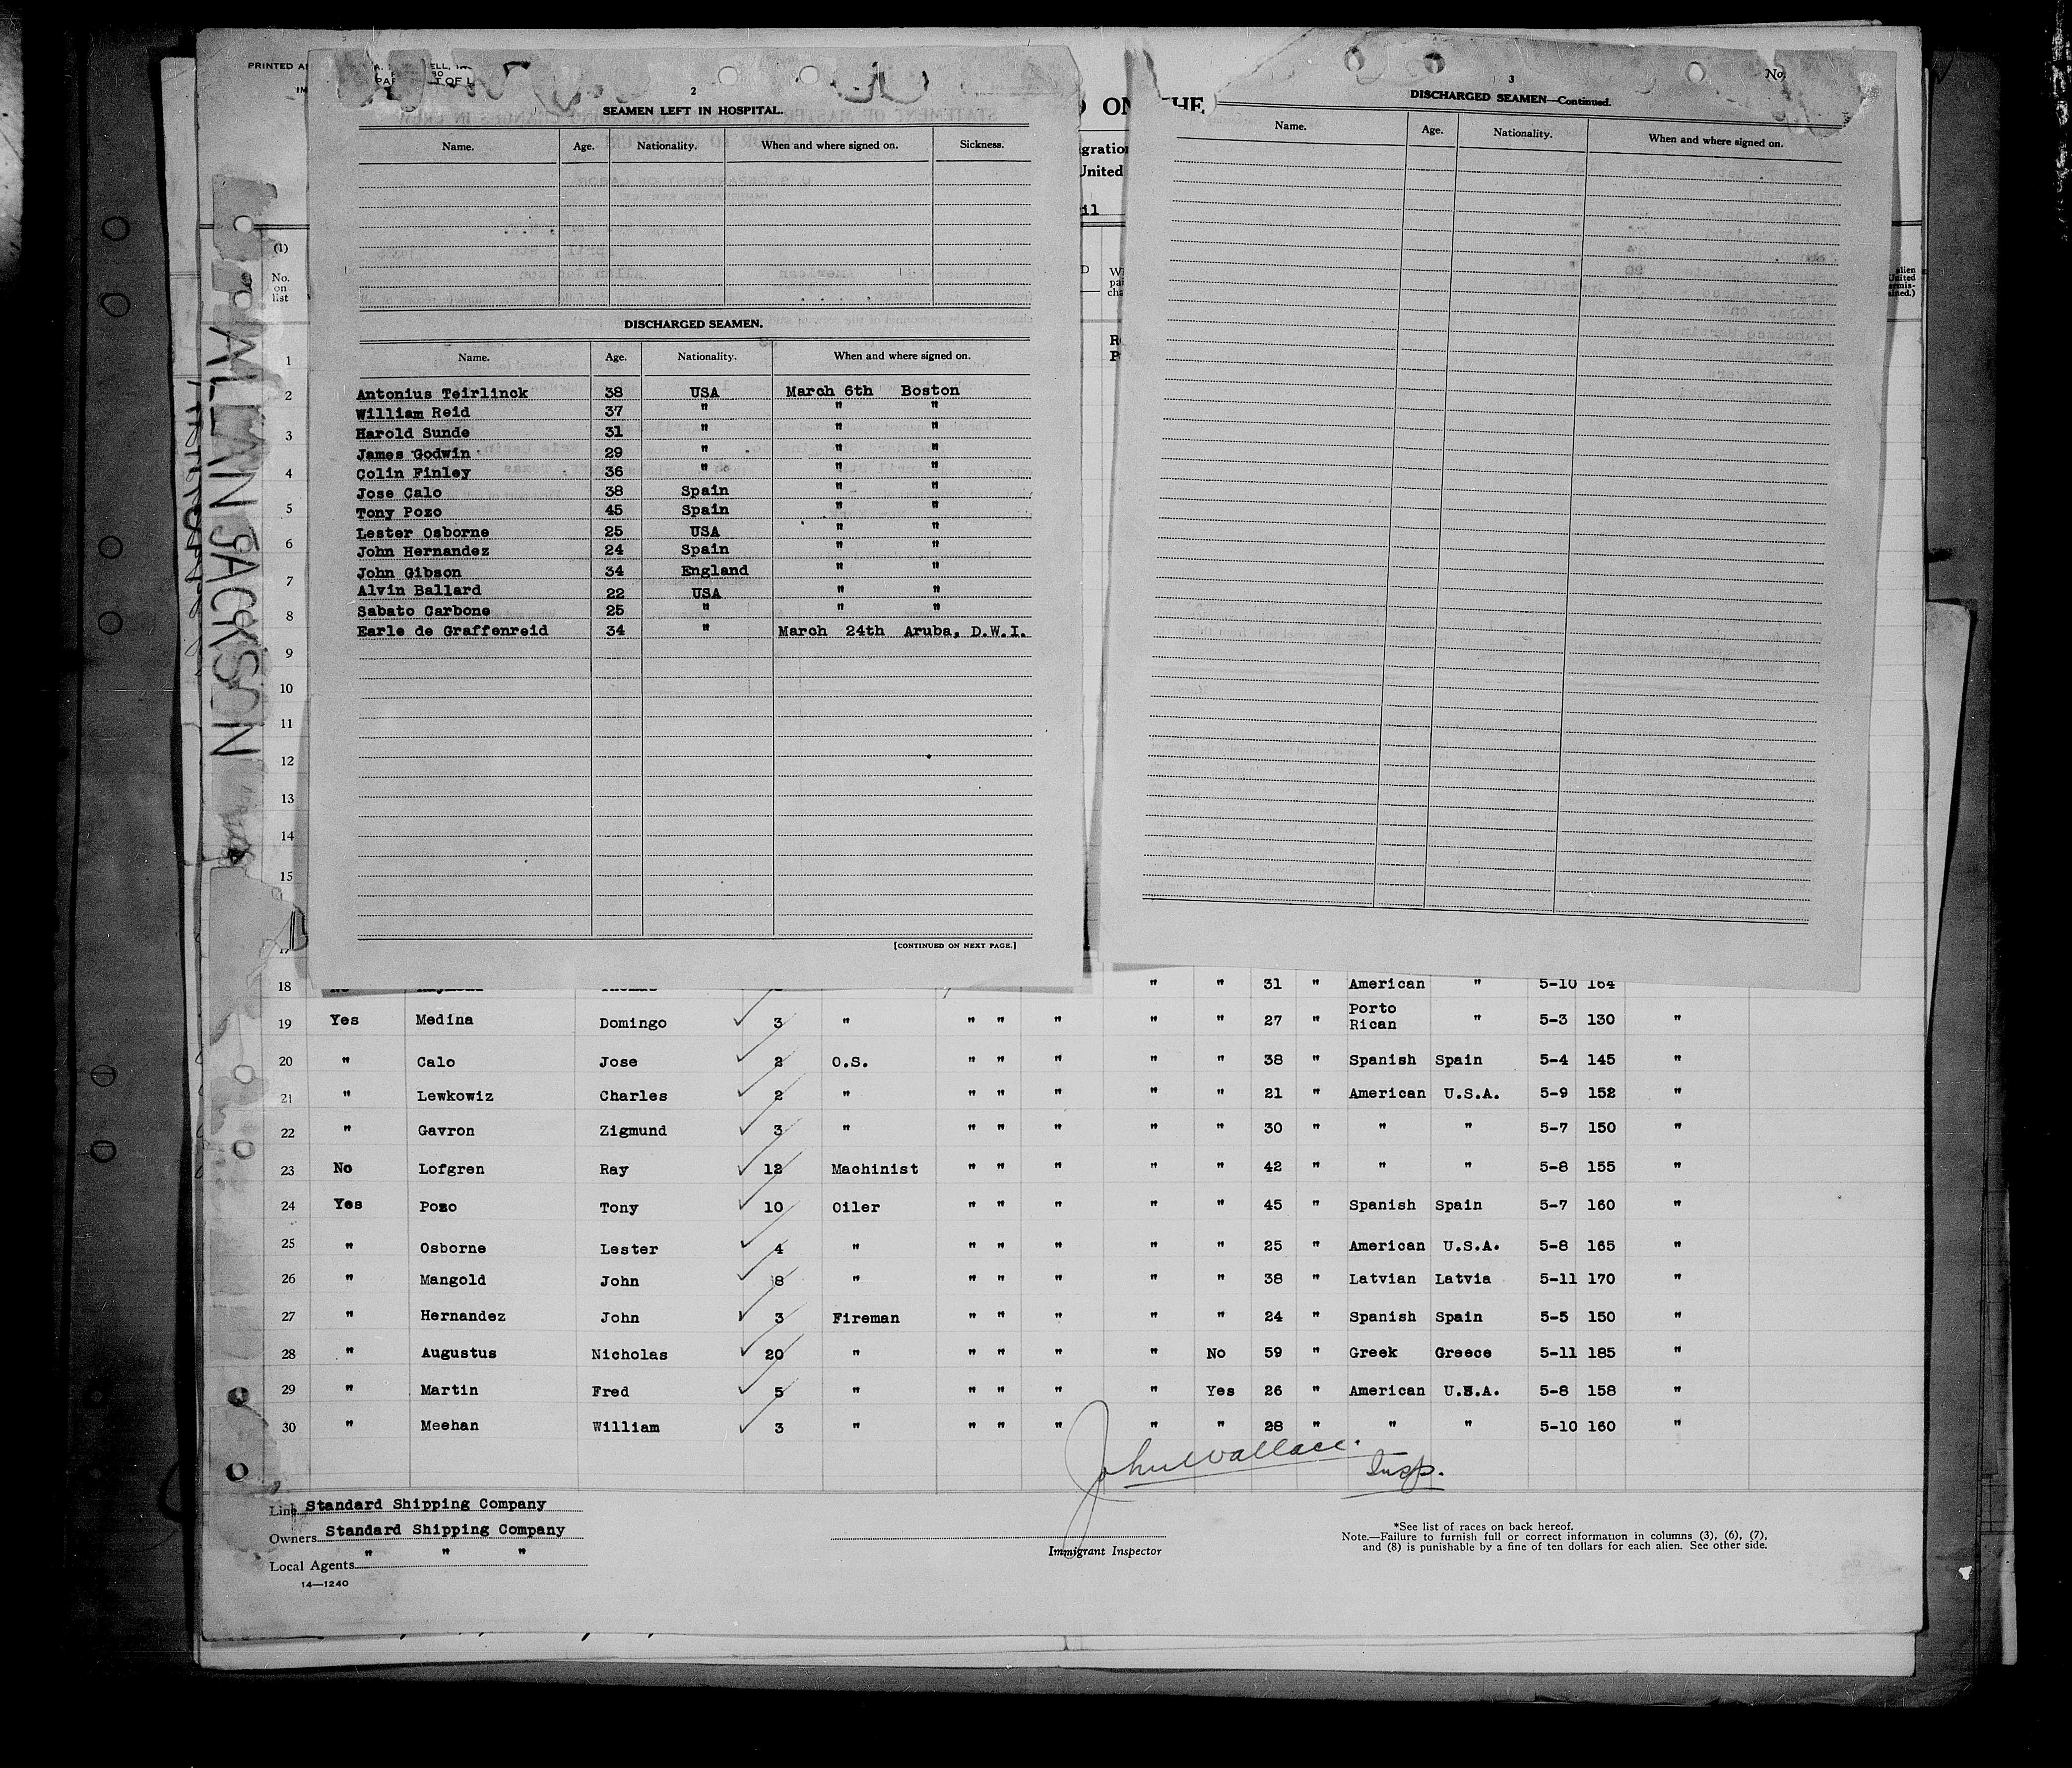 PRINTED
2
SEAMEN LEFT IN HOSPITAL.
Name. Age. Nationality. When and where signed on. Sickness.
DISCHARGED SEAMEN.
Name. Age. Nationality. When and where signed on.
Antonius Teirlinck 38 USA March 6th Boston
William Reid 37 " " "
Harold Sunde 31 " " "
James Godwin 29 " " "
Colin Finley 36 " " "
Jose Calo 38 Spain " "
Tony Pozo 45 Spain " "
Lester Osborne 25 USA " "
John Hernandez 24 Spain " "
John Gibson 34 England " "
Alvin Ballard 22 USA " "
Sabato Carbone 25 " " "
Earle de Graffenreid 34 " March 24th Aruba, D.W.I.
[CONTINUED ON NEXT PAGE.]
3
No.
DISCHARGED SEAMEN—Continued.
Name. Age. Nationality. When and where signed on.
ON THE
United
ALLAN JACKSON
(1)
No.
on
list
1
2
3
4
5
6
7
8
9
10
11
12
13
14
15
18 " " 31 " American " 5-10 164
19 Yes Medina Domingo 3 " " " " " " 27 " Porto Rican " 5-3 130 "
20 " Calo Jose 2 O.S. " " " " " 38 " Spanish Spain 5-4 145 "
21 " Lewkowiz Charles 2 " " " " " " 21 " American U.S.A. 5-9 152 "
22 " Gavron Zigmund 3 " " " " " " 30 " " " 5-7 150 "
23 No Lofgren Ray 12 Machinist " " " " " 42 " " " 5-8 155 "
24 Yes Pozo Tony 10 Oiler " " " " " 45 " Spanish Spain 5-7 160 "
25 " Osborne Lester 4 " " " " " " 25 " American U.S.A. 5-8 165 "
26 " Mangold John 8 " " " " " " 38 " Latvian Latvia 5-11 170 "
27 " Hernandez John 3 Fireman " " " " " 24 " Spanish Spain 5-5 150 "
28 " Augustus Nicholas 20 " " " " " No 59 " Greek Greece 5-11 185 "
29 " Martin Fred 5 " " " " " Yes 26 " American U.S.A. 5-8 158 "
30 " Meehan William 3 " " " " " " 28 " " " 5-10 160 "
John Wallace.
Insp.
Line Standard Shipping Company
Owners Standard Shipping Company
Local Agents " " "
14—1240
Immigrant Inspector
*See list of races on back hereof.
Note.—Failure to furnish full or correct information in columns (3), (6), (7),
and (8) is punishable by a fine of ten dollars for each alien. See other side.